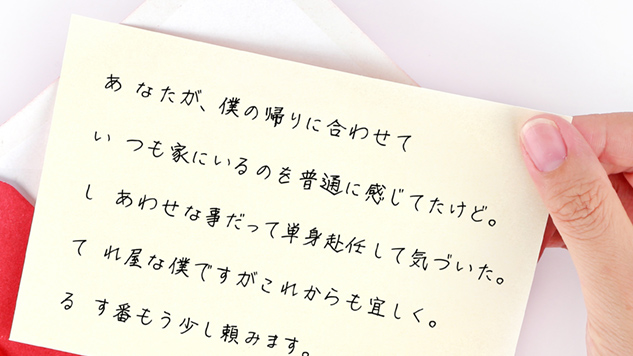 あ なたが、僕の帰りに合わせて
い つも家にいるのを普通に感じてたけど。
し あわせな事だって単身赴任して気づいた。
て れ屋な僕ですがこれからも宜しく。
る す番もう少し頼みます。